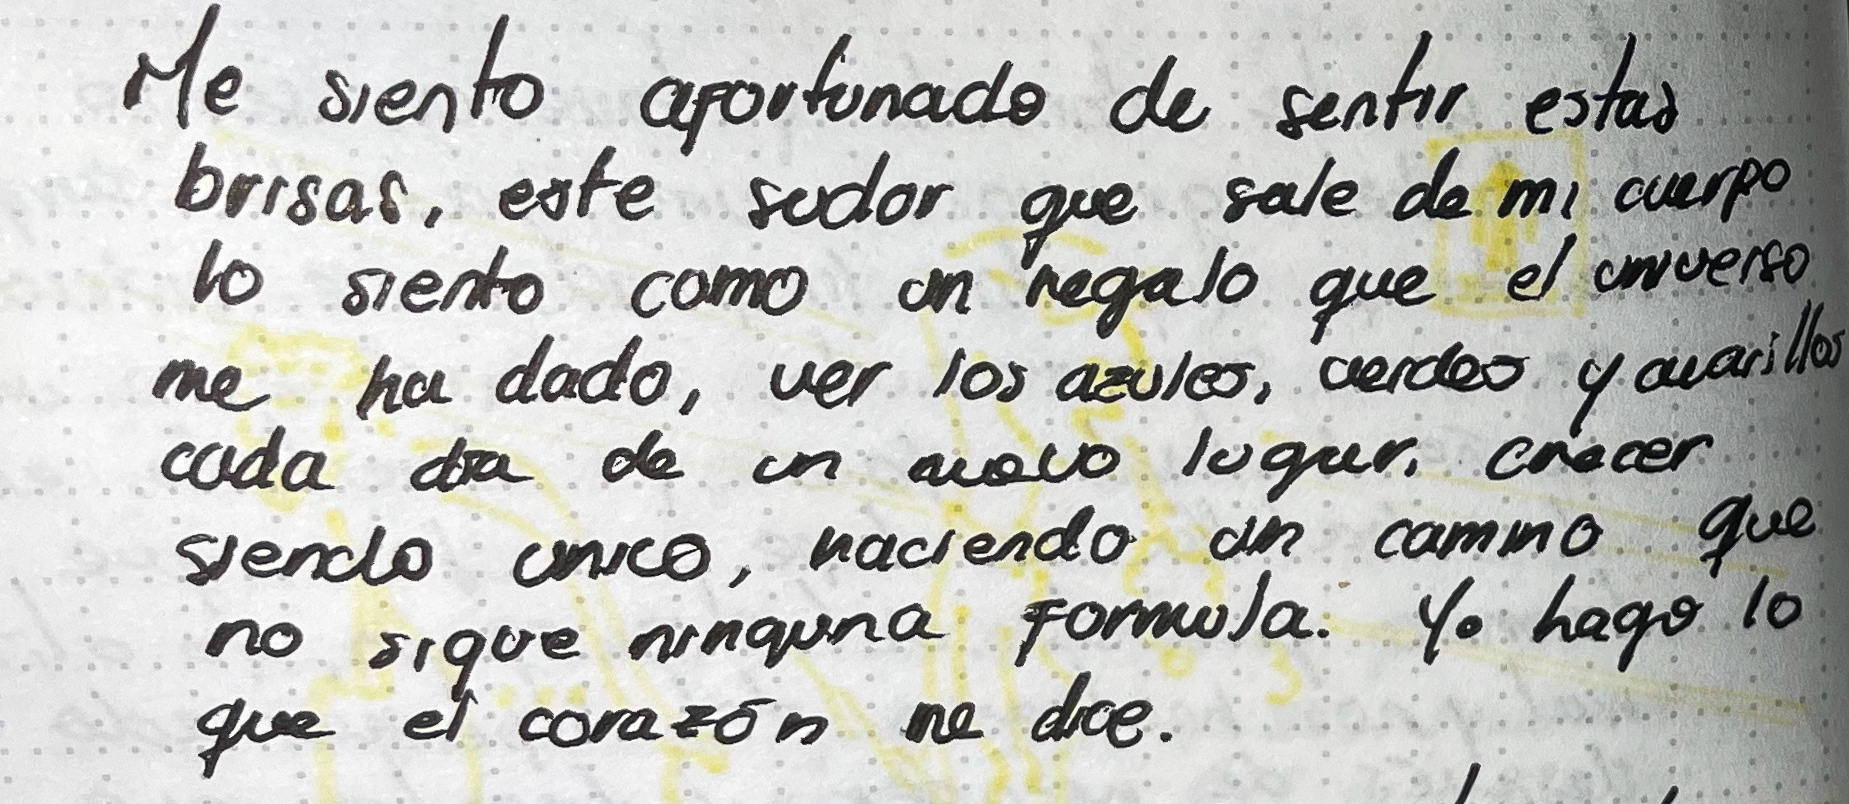 Me siento afortunado de sentir estas
brisas, este sudor que sale de mi cuerpo
lo siento como un regalo que el universo
me ha dado, ver los azules, verdes y amarillos
cada dia de un nuevo lugar. crecer
siendo unico, haciendo un camino que
no sigue ninguna formula. Yo hago lo
que el corazón me dice.